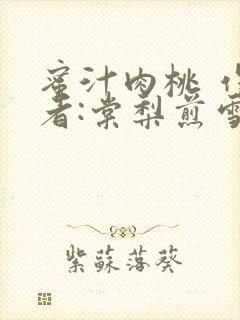 蜜汁肉桃 作
者:棠梨煎雪
紫蘇落葵